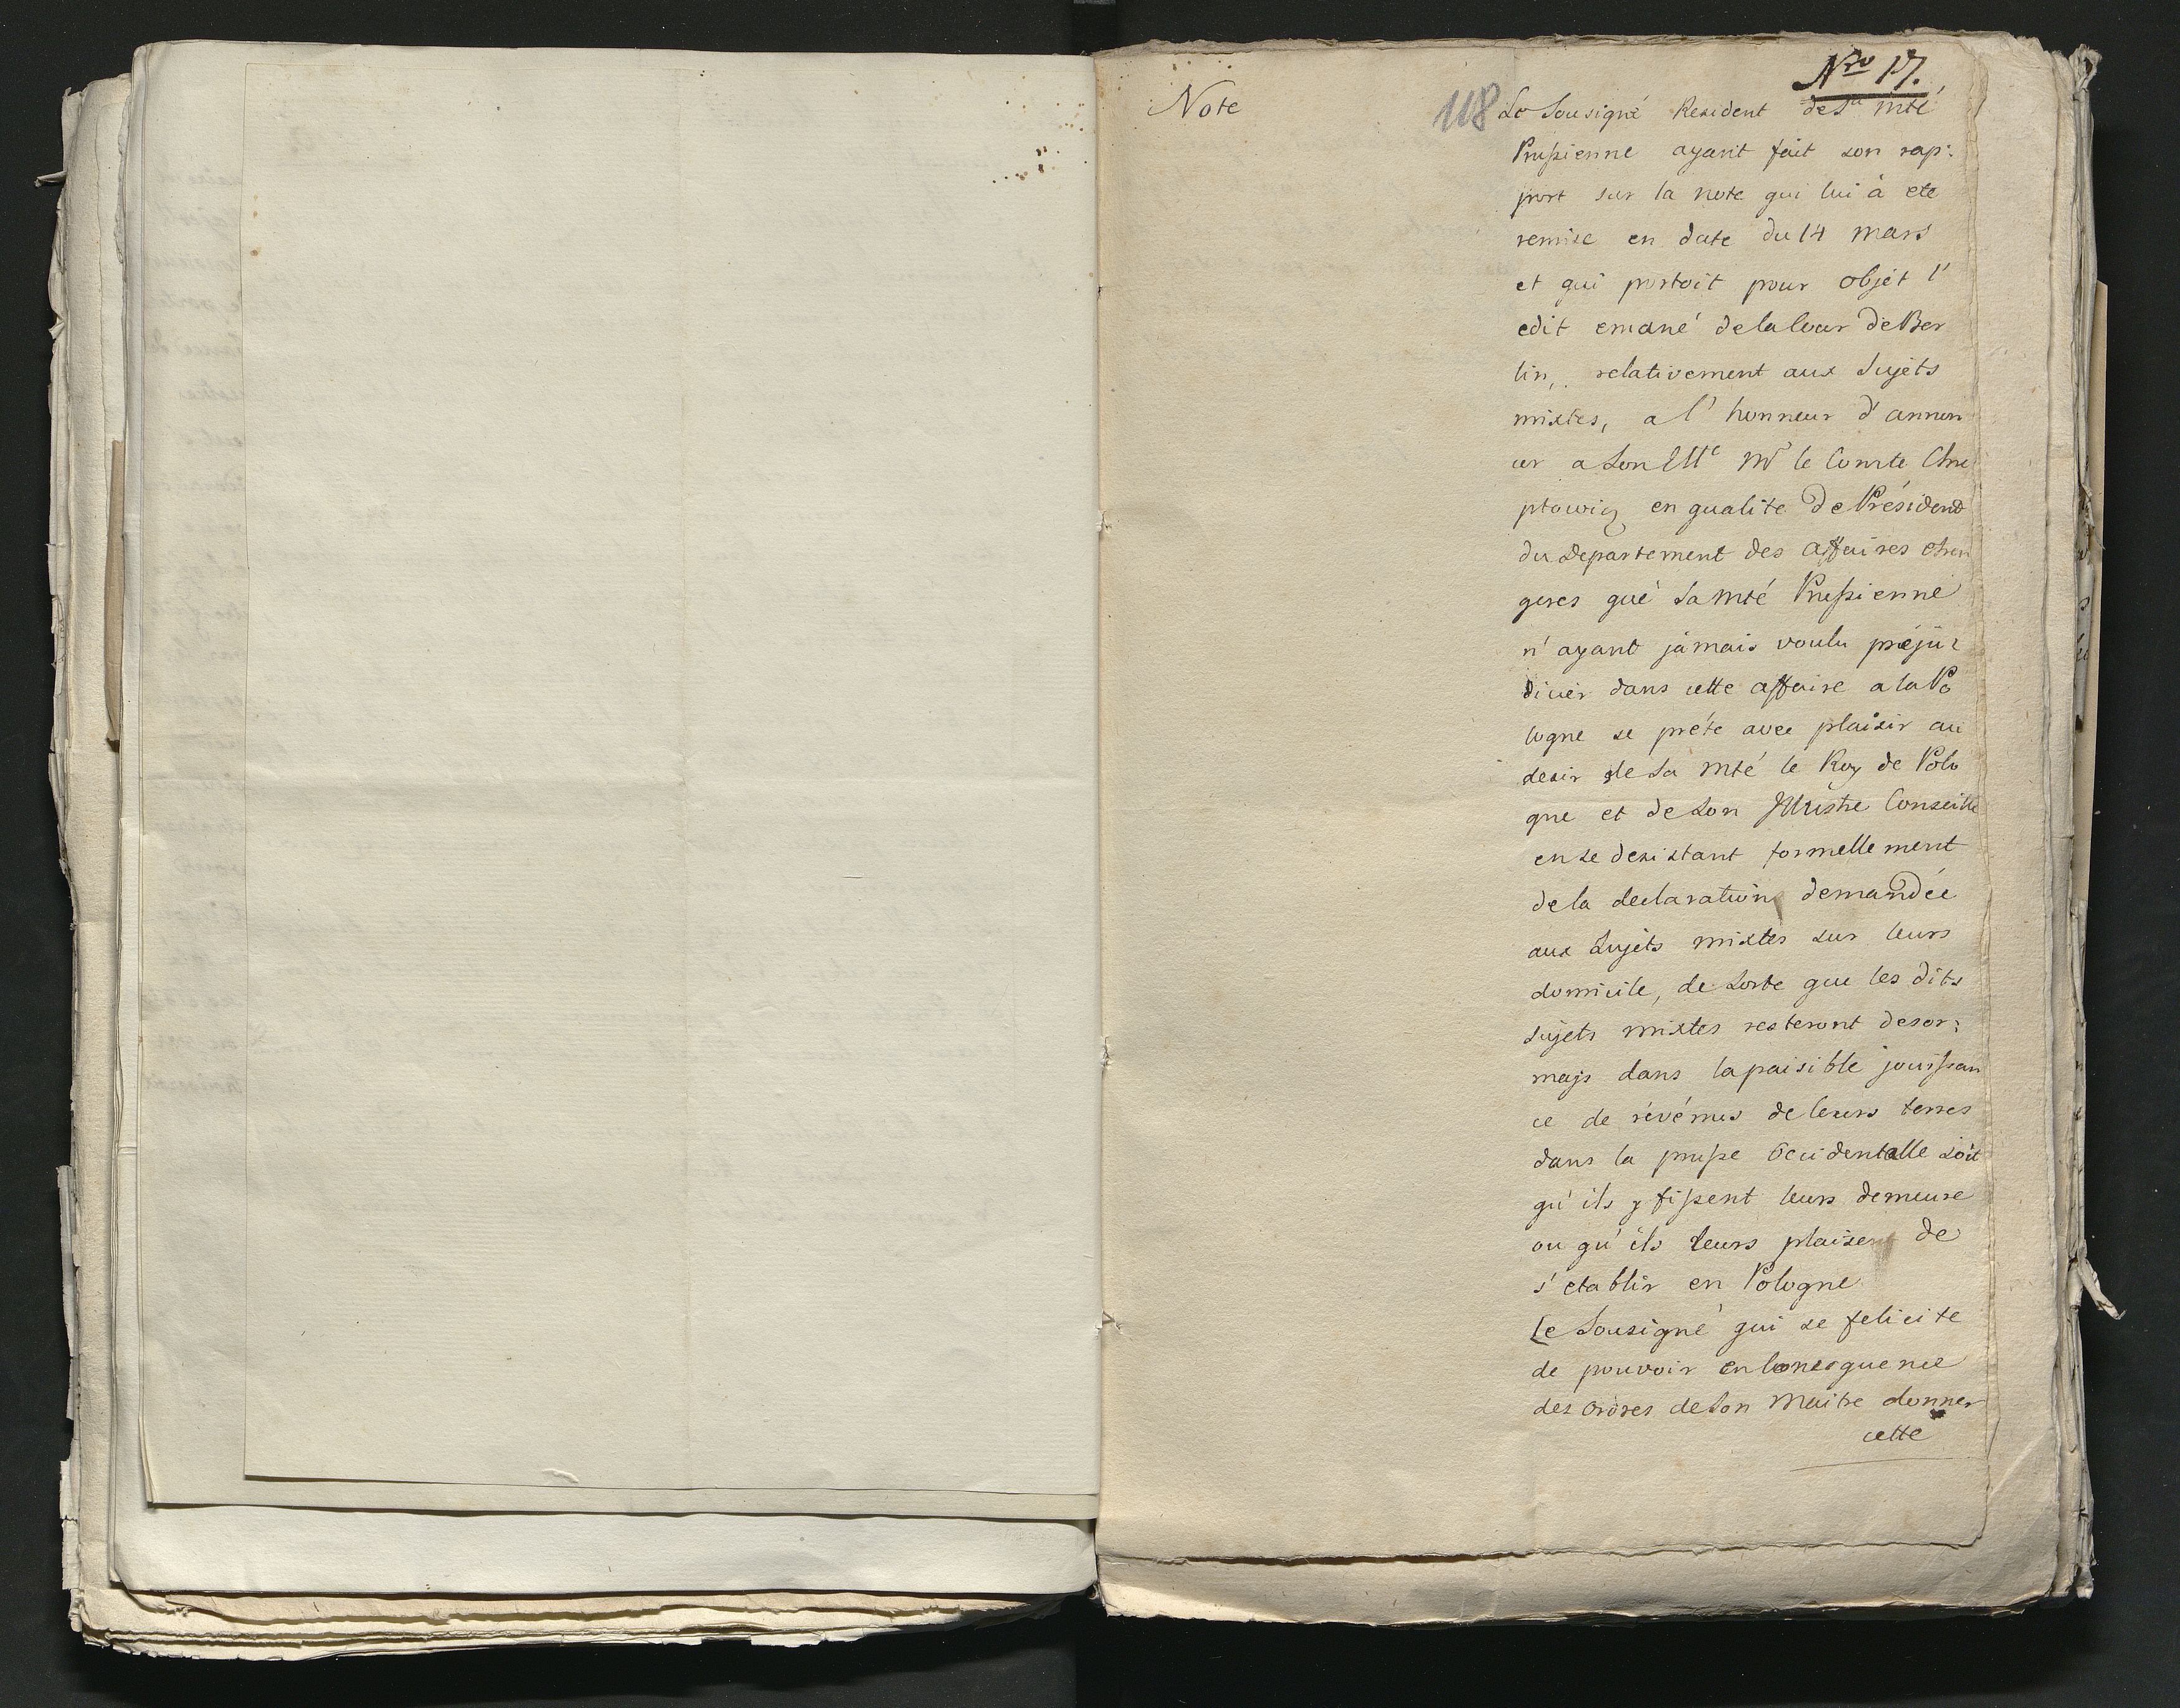 Nro 17.
Note
118
Le Sousigné Resident de Sa Mté
Prussienne ayant fait son rap:
port sur la note qui lui à eté
remise en date du 14 mars
et qui portoit pour objét l'
edit emané de la Cour de Ber
lin, relativement aux Sujéts
mixtes, a l' honneur d' annon
cer a Son Ellce Mr le Comte Chre
ptowicz en qualite de Présidend
du Departement des affaires etran
geres qué Sa Mté Prussienne
n' ayand jámais voulu préju:
diciér dans cette affaire a la Po
logne se préte avec plaisir au
desir de Sa Mté le Roy de Polo
gne et de Son Illustre Conseille
en se desistant formellement
de la declaration demandée
aux Sujéts mixtes sur leurs
domicile, de Sorte que les dits
sujets mixtes resteront desor:
mais dans la paisible jouissan
ce de révénus de leurs terres
dans la prusse Occidentalle soit
qu' ils y fissent leurs demeure
ou qu' ils leurs plaisen de
s' etablir en Pologne
Le Sousigné qui se felicite
de pouvoir en Consequence
des Ordres de Son Maitre donner
cette